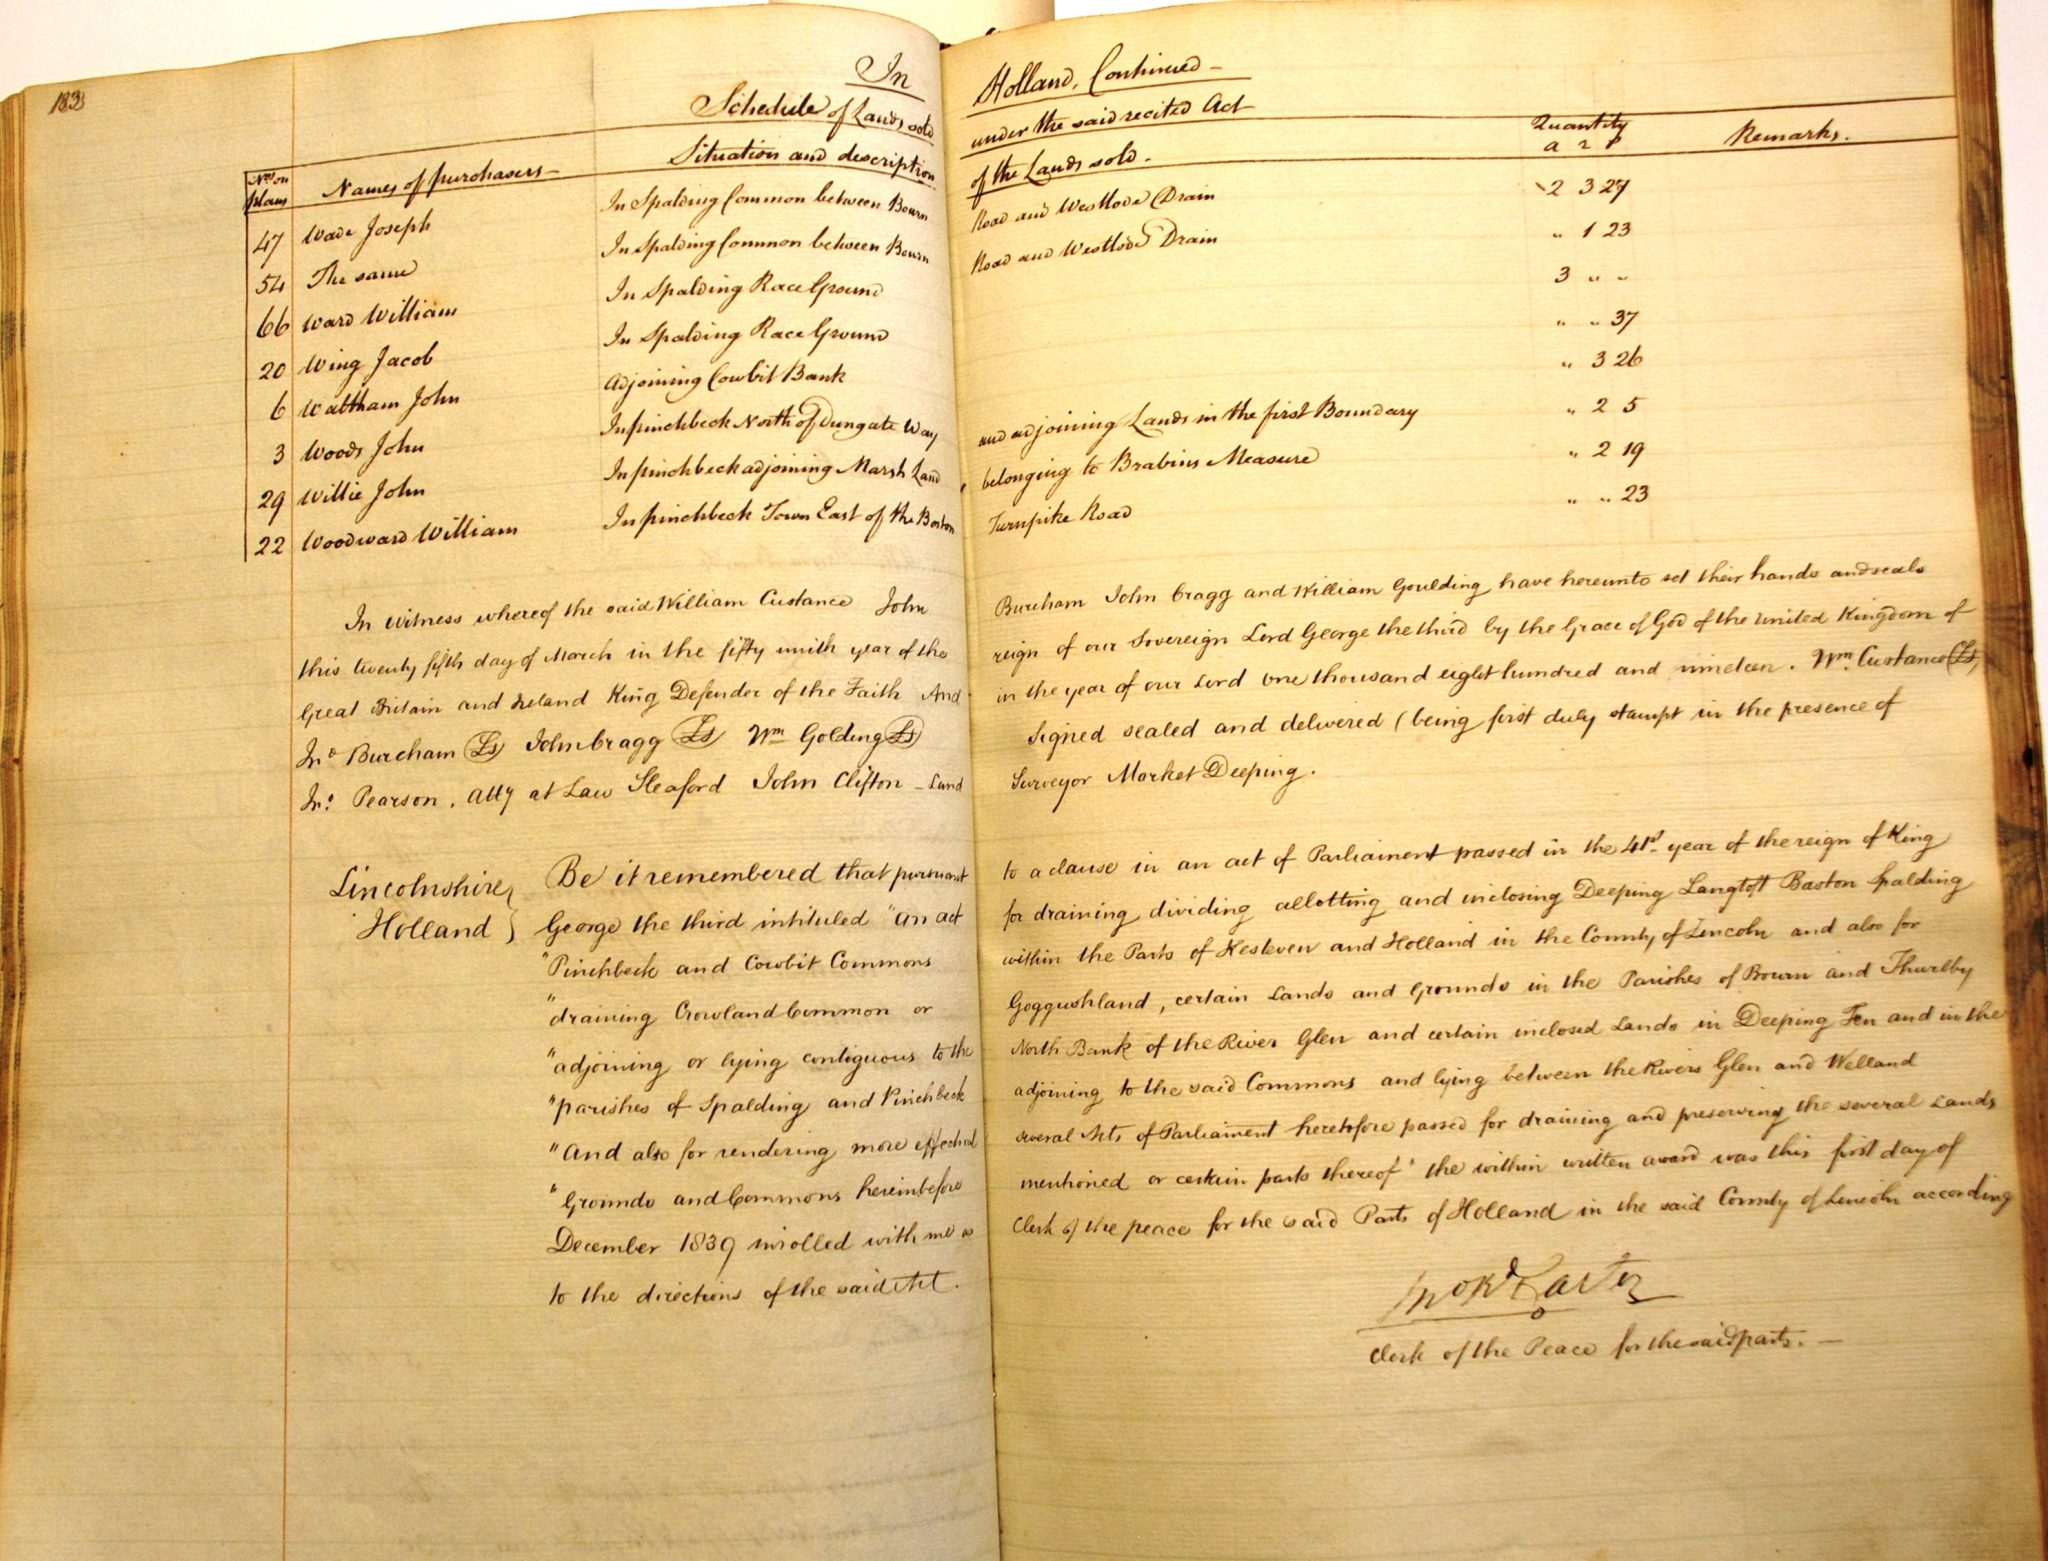 183
In Holland, Continued –
Schedule of Lands sold under the said recited Act
Nos on plans Names of purchasers – Situation and description of the Lands sold. Quantity a r p Remarks.
47 Wade Joseph In Spalding Common between Bourn Road and Westlode Drain 2 3 27
54 The same In Spalding Common between Bourn Road and Westlode Drain " 1 23
66 Ward William In Spalding Race Ground 3 " "
20 Wing Jacob In Spalding Race Ground " " 37
6 Waltham John Adjoining Cowbit Bank " 3 26
3 Woods John In pinchbeck North of Dungate Way and adjoining Lands in the first Boundary " 2 5
29 Willie John In pinchbeck adjoining Marsh Land belonging to Brabins Measure " 2 19
22 Woodward William In pinchbeck Town East of the Boston Turnpike Road " " 23
In Witness whereof the said William Custance John Burcham John Cragg and William Goulding have hereunto set their hands and seals
this twenty fifth day of March in the fifty ninth year of the reign of our Sovereign Lord George the third by the Grace of God of the United Kingdom of
Great Britain and Ireland King Defender of the Faith And in the year of our Lord One thousand eight hundred and nineteen. Wm Custance Ls
Jno Burcham Ls John Cragg Ls Wm Golding Ls Signed sealed and delivered (being first duly stampt in the presence of
Jno. Pearson. Atty at Law Sleaford John Clifton – Land Surveyor Market Deeping.
Lincolnshire Be it remembered that pursuant to a clause in an act of Parliament passed in the 41st year of the reign of King
Holland } George the third intituled "An act for draining dividing allotting and inclosing Deeping Langtoft Baston Spalding
"Pinchbeck and Cowbit Commons within the Parts of Kesteven and Holland in the County of Lincoln and also for
"draining Crowland Common or Goggushland, certain Lands and Grounds in the Parishes of Bourn and Thurlby
"adjoining or lying contiguous to the North Bank of the River Glen and certain inclosed Lands in Deeping Fen and in the
"parishes of Spalding and Pinchbeck adjoining to the said Commons and lying between the Rivers Glen and Welland
"And also for rendering more effectual several Acts of Parliament heretofore passed for draining and preserving the several Lands
"Grounds and Commons hereinbefore mentioned or certain parts thereof" the within written award was this first day of
December 1839 inrolled with me as Clerk of the peace for the said Parts of Holland in the said County of Lincoln according
to the directions of the said Act.
Clerk of the Peace for the said parts. –